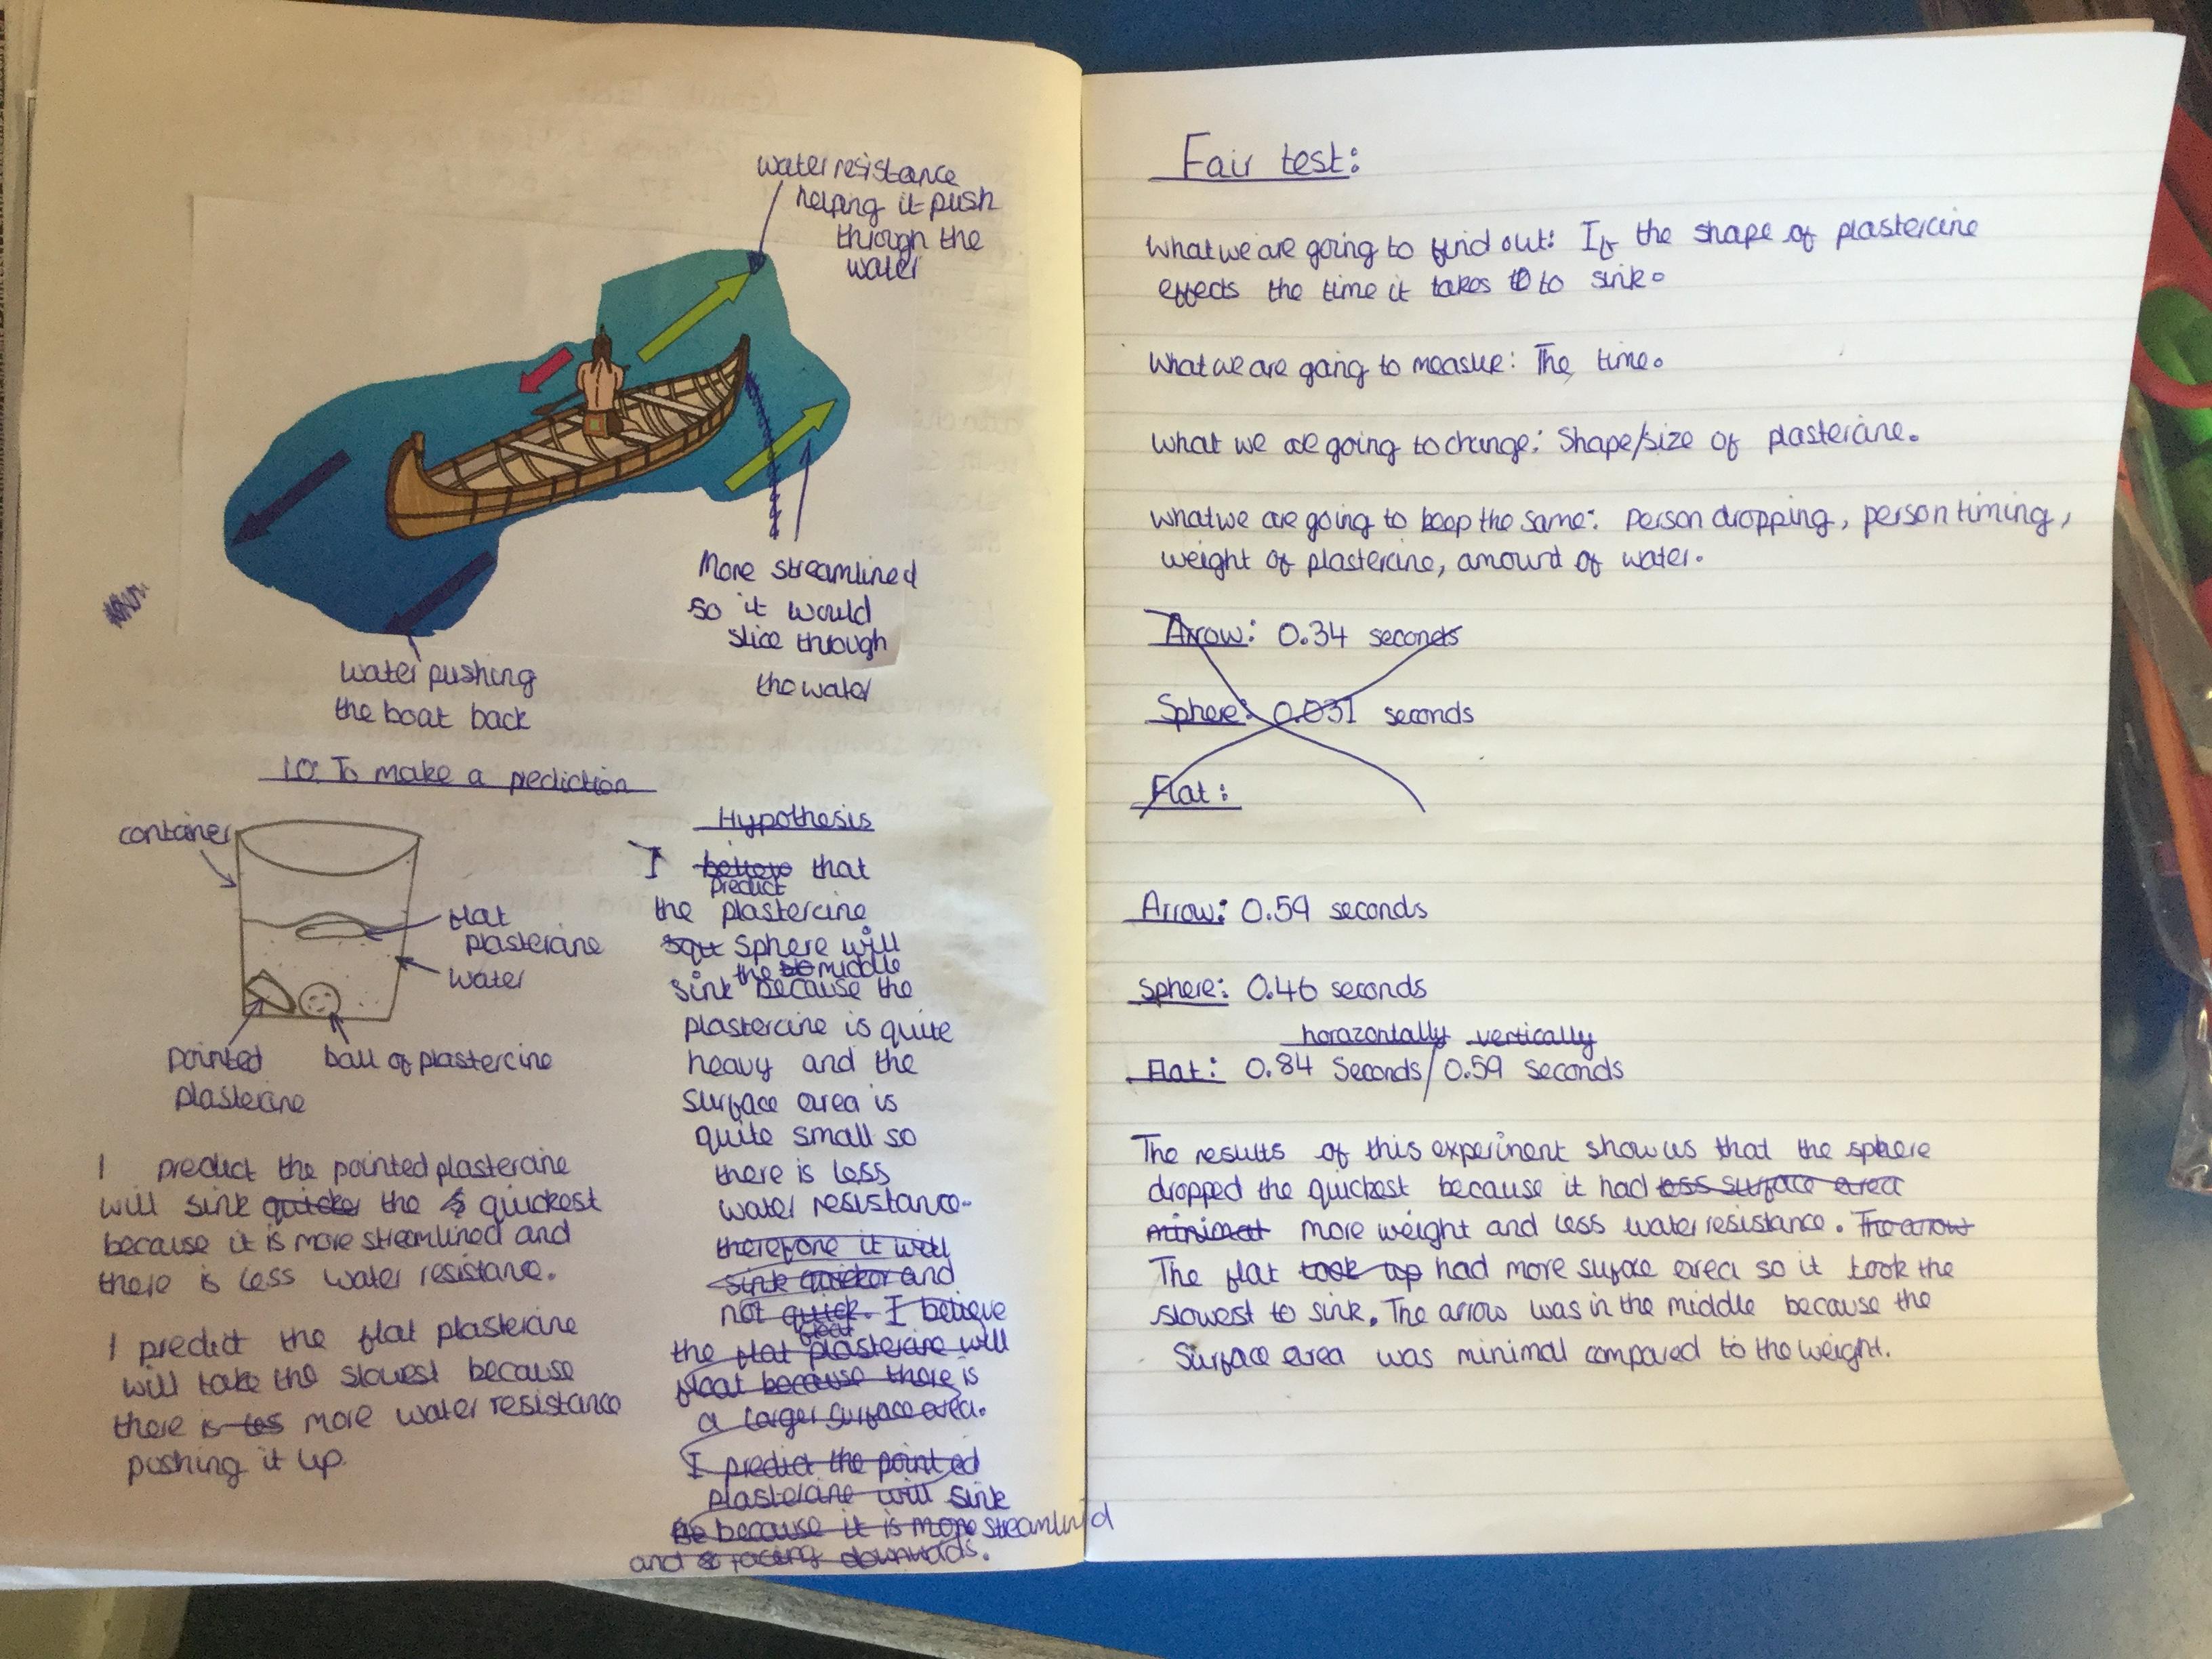 water resistance
helping it push
through the
water
More streamlined
so it would
slice through
the water
water pushing
the boat back
10: To make a prediction
container
flat
plasterine
water
pointed
plasterine
ball of plastercine
I predict the pointed plastercine
will sink quicker the quickest
because it is more streamlined and
there is less water resistance.
I predict the flat plastercine
will take the slowest because
there is les more water resistance
pushing it up.
Hypothesis
I that
predict
the plastercine
sphere will
the middle
sink because the
plastercine is quite
heavy and the
surface area is
quite small so
there is less
water resistance.
therefore it will
sink quicker and
not quick. I believe
float
the flat plastercine will
float because there is
a larger surface area.
I predict the pointed
plastercine will sink
because it is more streamlined
and facing downwards.
Fair test:
What we are going to find out: If the shape of plastercine
effects the time it takes to to sink.
What we are going to measure: The time.
What we are going to change: Shape/size of plastercine.
What we are going to keep the same: Person dropping, person timing,
weight of plastercine, amount of water.
Arrow: 0.34 seconds
Sphere: 0.031 seconds
Flat:
Arrow: 0.59 seconds
Sphere: 0.46 seconds
horazontally vertically
Flat: 0.84 Seconds/0.59 seconds
The results of this experiment show us that the sphere
dropped the quickest because it had less surface area
minimal more weight and less water resistance. The arrow
The flat took up had more surface area so it took the
slowest to sink. The arrow was in the middle because the
Surface area was minimal compared to the weight.